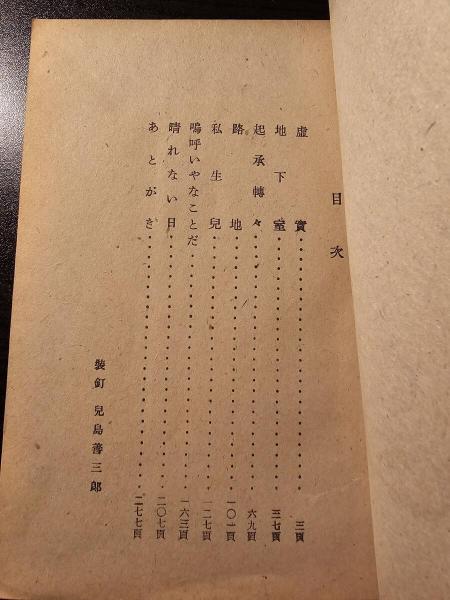 目次
虚實 三頁
地下室 三七頁
起承轉々 六九頁
路地 一〇一頁
私生兒 一二七頁
嗚呼いやなことだ 一六三頁
晴れない日 二〇七頁
あとがき 二七七頁
裝釘 兒島善三郎